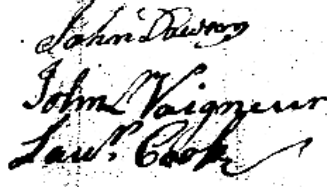 John Dawson
John Vaigneur
Lawr. Cook